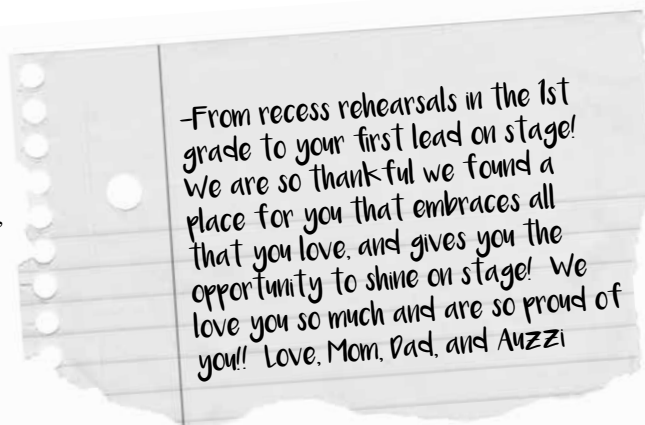 -From recess rehearsals in the 1st
grade to your first lead on stage!
We are so thankful we found a
place for you that embraces all
that you love, and gives you the
opportunity to shine on stage! We
love you so much and are so proud of
you!! Love, Mom, Dad, and Auzzi